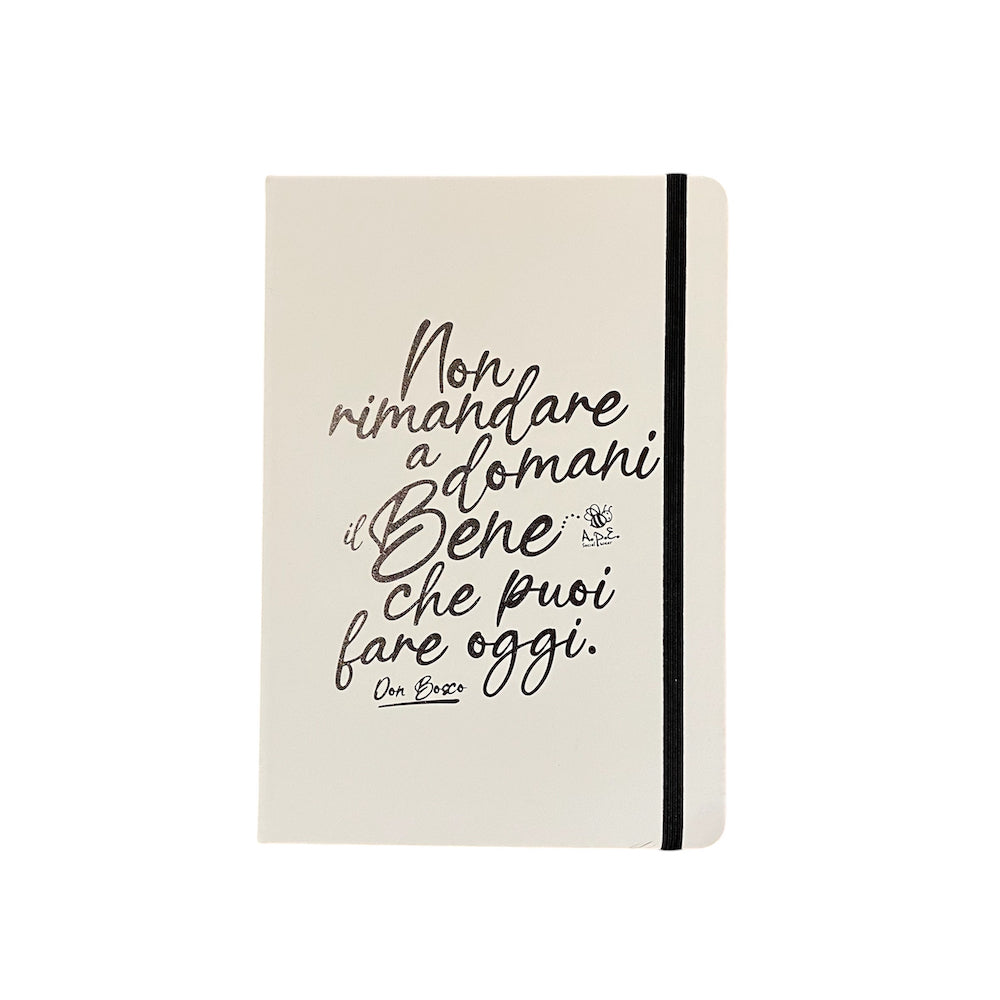 Non
rimandare
a domani
il Bene
A.P.E.
Social wear
che puoi
fare oggi.
Don Bosco